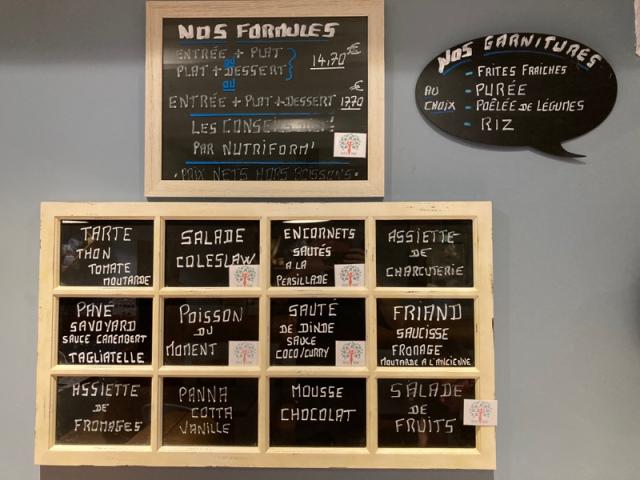 NOS FORMULES
ENTRÉE + PLAT
OU
PLAT + DESSERT
14,70 €
OU
ENTRÉE + PLAT + DESSERT 17,70 €
LES
PAR NUTRIFORM'
PRIX NETS HORS BOISSONS
NOS GARNITURES
AU CHOIX
- FRITES FRAÎCHES
- PURÉE
- POÊLÉE DE LÉGUMES
- RIZ
TARTE
THON
TOMATE
MOUTARDE
SALADE
COLESLAW
ENCORNETS
SAUTÉS
A LA
PERSILLADE
ASSIETTE
DE
CHARCUTERIE
PAVÉ
SAVOYARD
SAUCE CAMEMBERT
TAGLIATELLE
POISSON
DU
MOMENT
SAUTÉ
DE DINDE
SAUCE
COCO/CURRY
FRIAND
SAUCISSE
FROMAGE
MOUTARDE A L'ANCIENNE
ASSIETTE
DE
FROMAGES
PANNA
COTTA
VANILLE
MOUSSE
CHOCOLAT
SALADE
DE
FRUITS